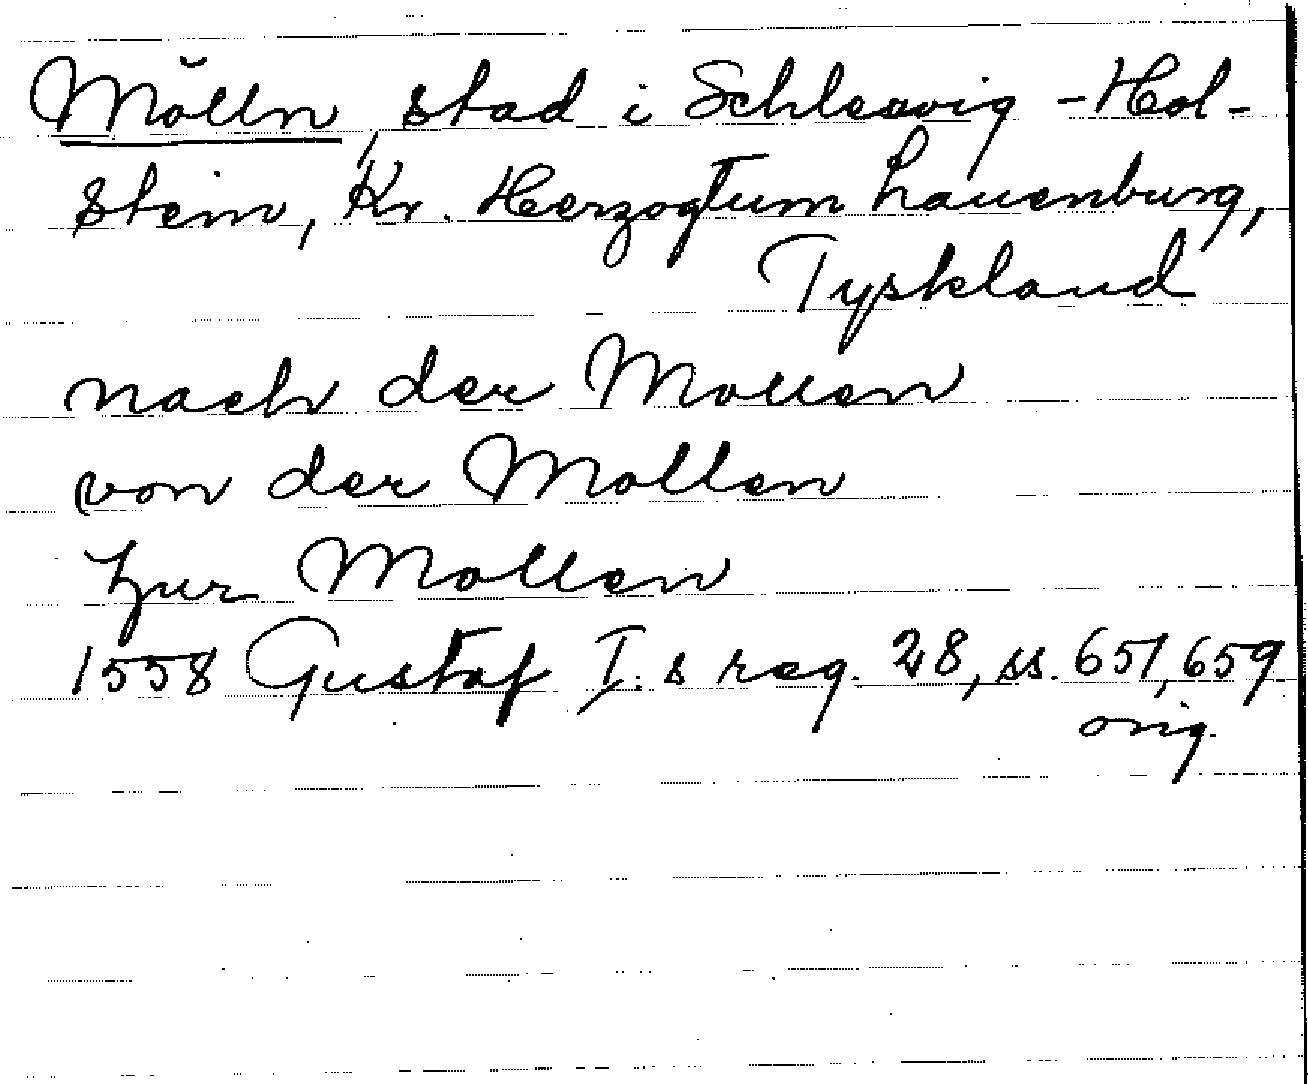 Mölln, stad i Schleswig-Hol-
stein, Kr. Herzogtum Lauenburg,
Tyskland
nach der Mollen
von der Mollen
zur Mollen
1558 Gustaf I:s reg. 28, ss. 651, 659
orig.